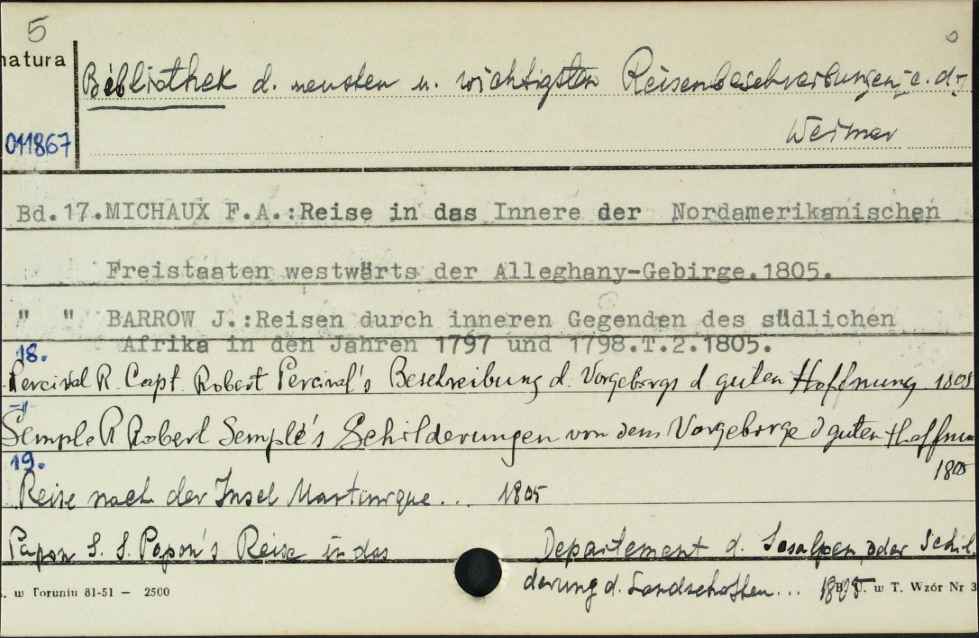 5
natura
Bibliothek d. neusten u. wichtigsten Reisenbeschreibungen e. d.
Weimar
011867
Bd.17.MICHAUX F.A.:Reise in das Innere der Nordamerikanischen
Freistaaten westwärts der Alleghany-Gebirge.1805.
" " BARROW J.:Reisen durch inneren Gegenden des südlichen
Afrika in den Jahren 1797 und 1798.T.2.1805.
18.
Percival R. Capt. Robert Percival's Beschreibung d. Vorgebergs d guten Hoffnung 1805
-"-
Semple R Robert Semple's Schilderungen von dem Vorgeberge d guten Hoffnu
1805
19.
Reise nach der Insel Martinique... 1805
Papon S. S. Papon's Reise in das Departement d. Seealpen oder Schil
derung d. Landschaften... 1805
. w Toruniu 81-51 — 2500
B. U. w T. Wzór Nr 3